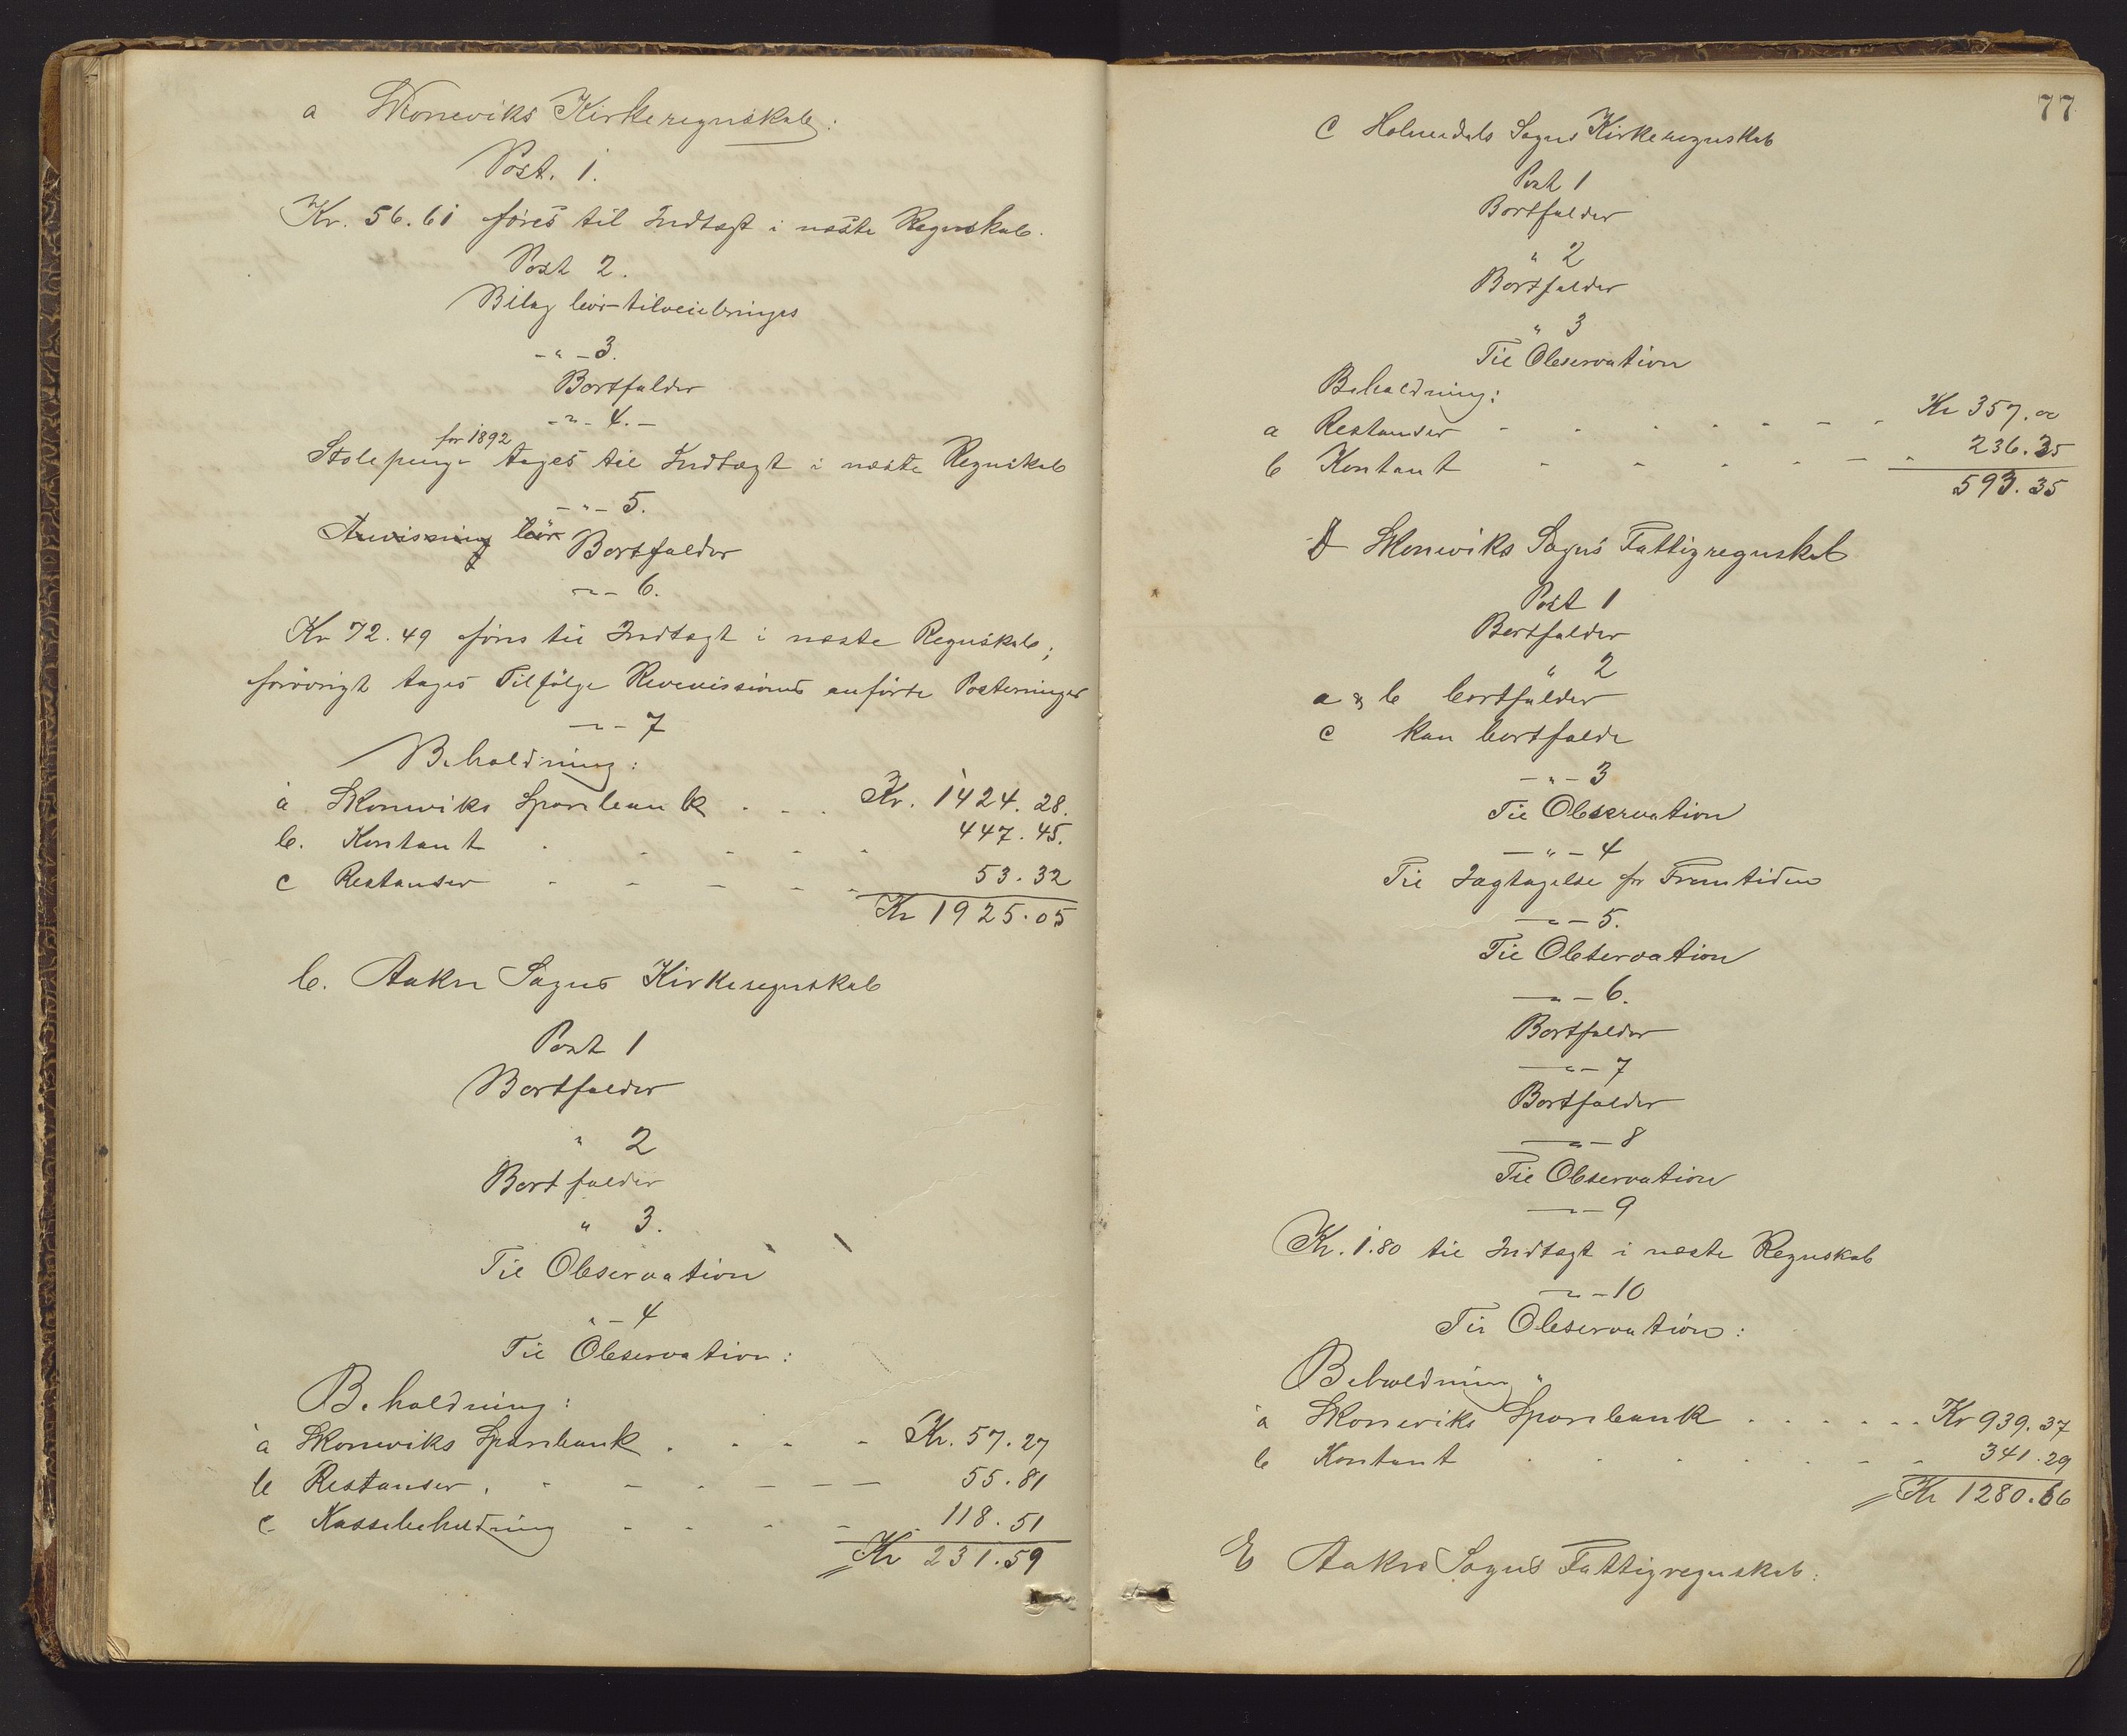 a Skoneviks Kirkeregnskab:
Post. 1.
Kr. 56.61 føres til Indtægt i næste Regnskab.
Post 2.
Bilag bør tilveiebringes
-"-3.
Bortfalder
-"-4.-
for 1892
Stolepenge tages til Indtægt i næste Regnskab
-"-5.
Anvisning bør Bortfalder
-"-6.
Kr 72.49 føres til Indtægt i næste Regnskab;
forövrigt tages Tilfölge Revisionens anförte Posteringer
-"-7
Beholdning:
a Skoneviks Sparebank . . . Kr. 1424.28.
b. Kontant . - - - - - 447.45.
c Restanser - - - - - - 53.32
Kr 1925.05
b. Aakre Sogns Kirkeregnskab
Post 1
Bortfalder
" 2
Bortfalder
" 3.
Til Observation
"-4
Til Observation:
Beholdning:
a Skoneviks Sparebank . - - - Kr. 57.27
b Restanser . - - - - - - 55.81
c Kassebeholdning - - - - - 118.51
Kr 231.59
77
C Holmedals Sogns Kirkeregnskab
Post 1
Bortfalder
" 2
Bortfalder
" 3
Til Observation
Beholdning:
a Restanser - - - - - - - - Kr 357.00
b Kontant - - - - - - 236.35
593.35
D Skoneviks Sogns Fattigregnskab
Post 1
Bortfalder
" 2
a & b bortfalder
c kan bortfalde
-"-3
Til Observation
-"-4
Til Iagtagelse for Fremtiden
-"-5.
Til Observation
-"-6.
Bortfalder
-"-7
Bortfalder
-"-8
Til Observation
-"-9
Kr. 1.80 til Indtægt i næste Regnskab
-"-10
Til Observation:
Beholdning "
a Skoneviks Sparebank . . . . . . Kr 939.37
b Kontant . . . . . - - 341.29
Kr 1280.66
E Aakre Sogns Fattigregnskab: